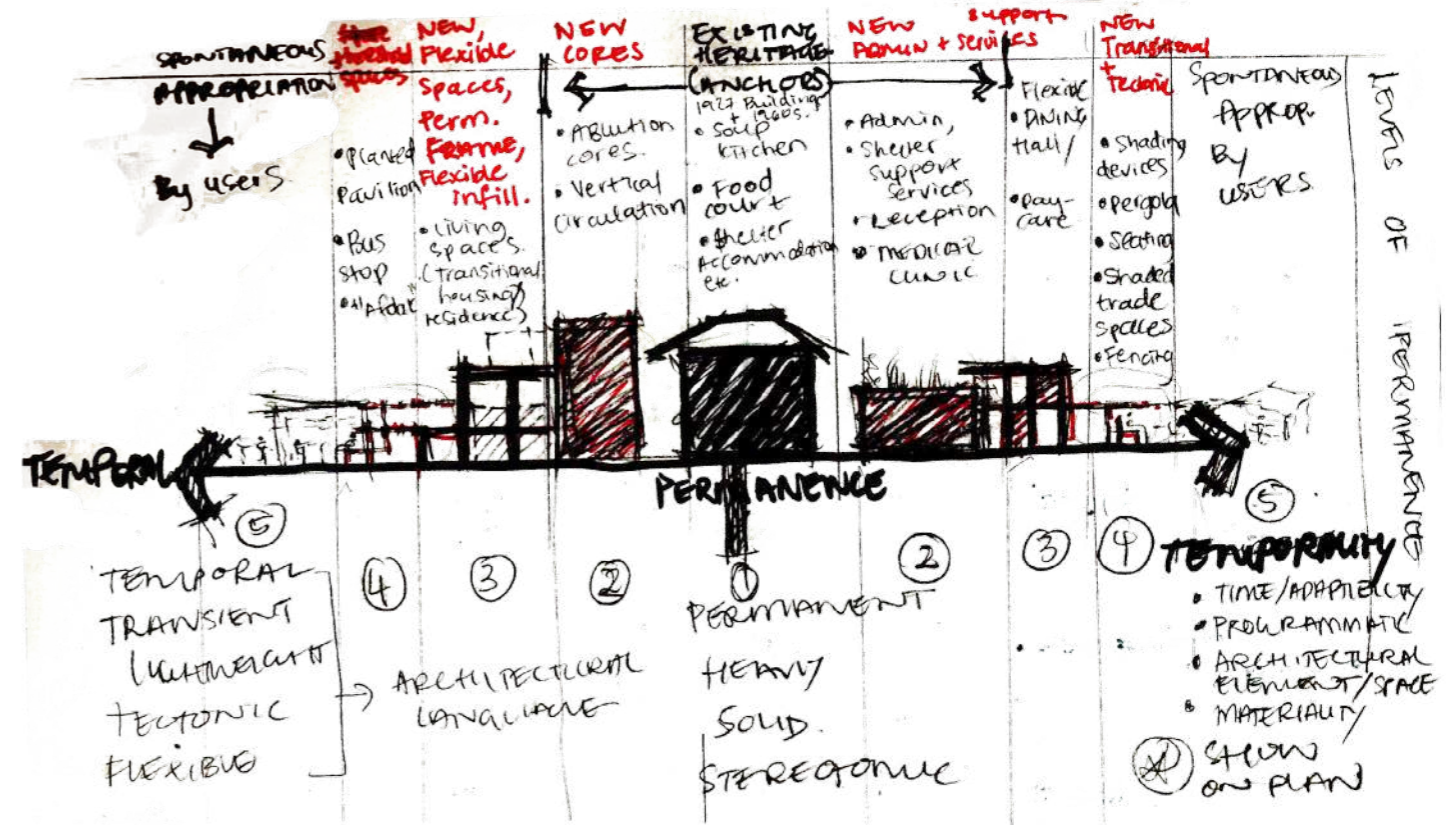 SPONTANEOUS
APPROPRIATION
By users
threshold
spaces
• Planted
Pavilion
• Bus
stop
NEW,
Flexible
Spaces,
Perm.
FRAME,
Flexible
Infill.
• Living
spaces.
(Transitional
housing
residences)
NEW
CORES
• ABlution
cores.
• Vertical
circulation
EXISTING
HERITAGE
(ANCHORS)
1927 Building
+ 1960s.
• Soup
kitchen
• Food
court
• Shelter
Accommodation
etc.
NEW support
ADMIN + services
• Admin,
• Shelter
support
services
• Reception
• MEDICAL
CLINIC
Flexible
• DINING
Hall/
• Day-
care
NEW
Transitional
+
Tectonic
• Shading
devices
• pergola
• Seating
• Shaded
trade
spaces
• Fencing
SPONTANEOUS
APPROP.
By
USERS.
LEVELS OF PERMANENCE
TEMPORAL
PERMANENCE
5
4
3
2
1
2
3
4
5
TEMPORAL
TRANSIENT
LIGHTWEIGHT
TECTONIC
FLEXIBLE
ARCHITECTURAL
LANGUAGE
PERMANENT
HEAVY
SOLID.
STEREOTOMIC
TEMPORALITY
• TIME/ADAPTABILITY
• PROGRAMMATIC
• ARCHITECTURAL
ELEMENT/SPACE
• MATERIALITY
SHOW
ON PLAN